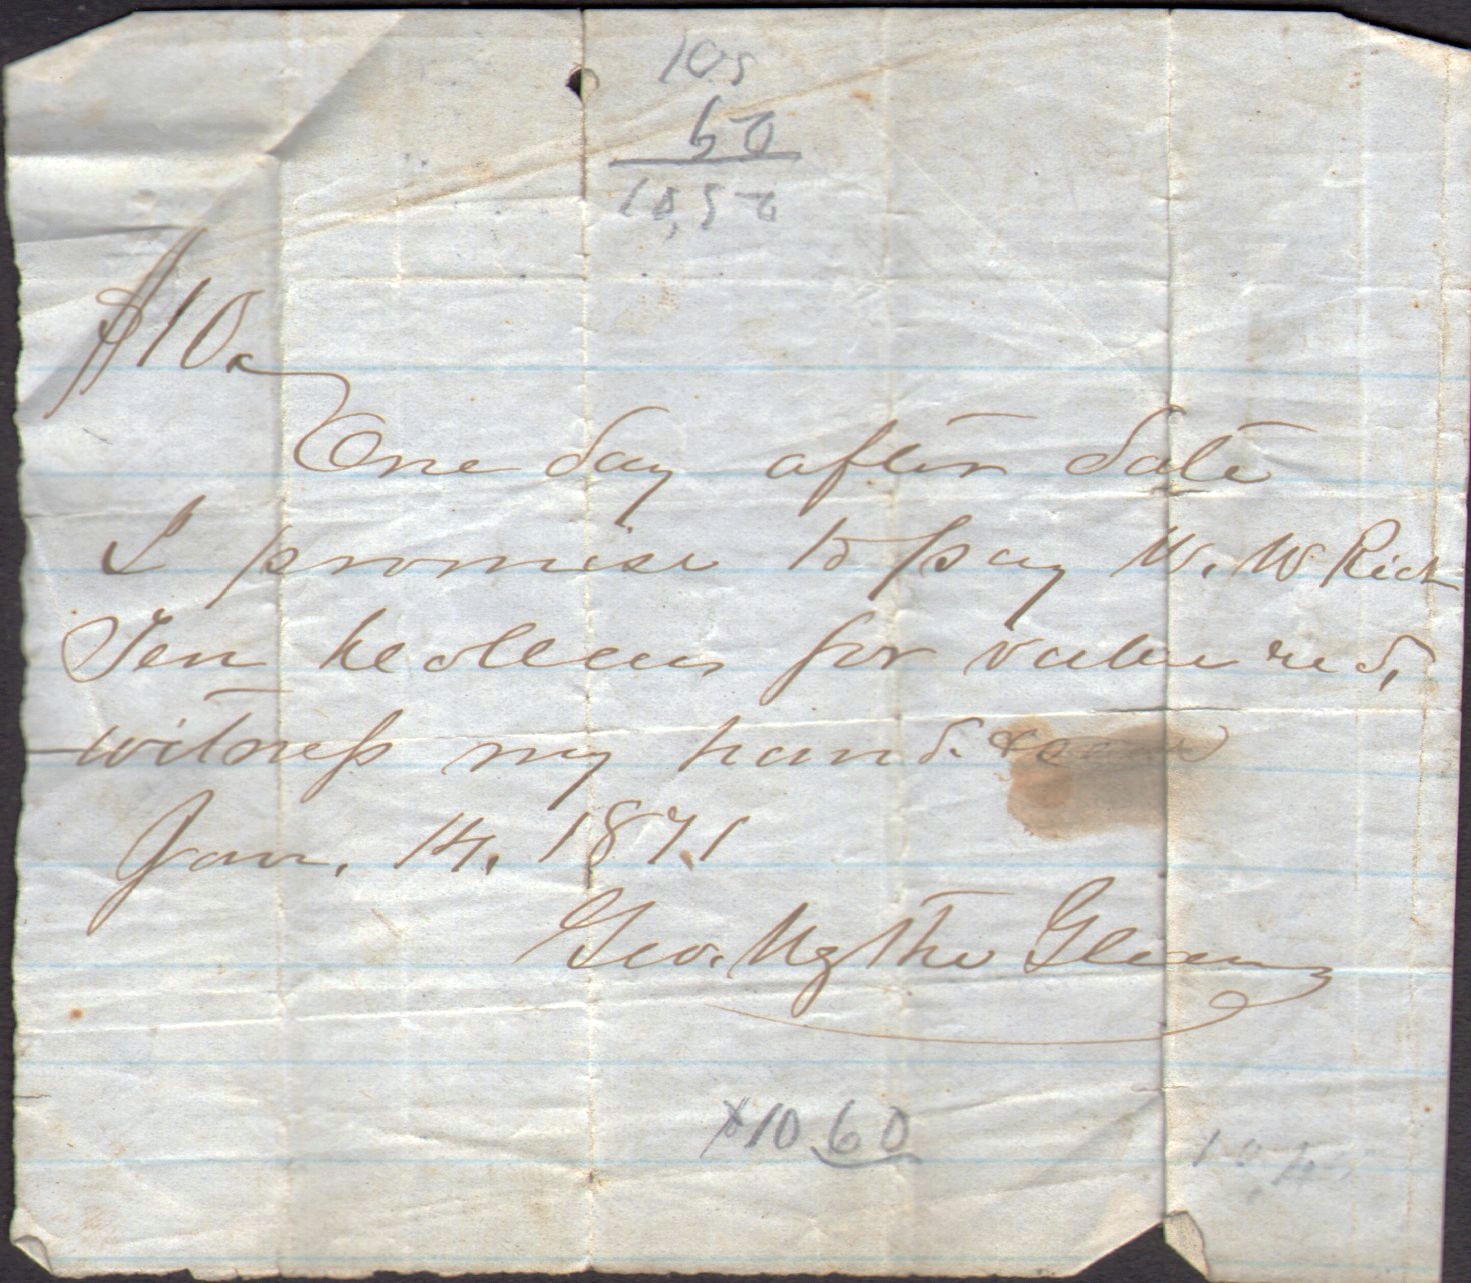 105
60
10,50
$10.
One day after date
I promise to pay W. W Rich
Ten dollars for value recd,
witness my hand &
Jan. 14. 1871
Geo.
$10 60